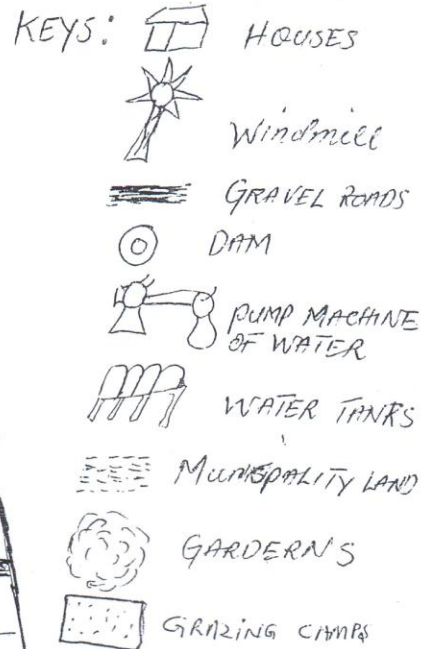 KEYS: HOUSES
Windmill
GRAVEL ROADS
DAM
PUMP MACHINE
OF WATER
WATER TANKS
MUNISPALITY LAND
GARDERNS
GRAZING CAMPS